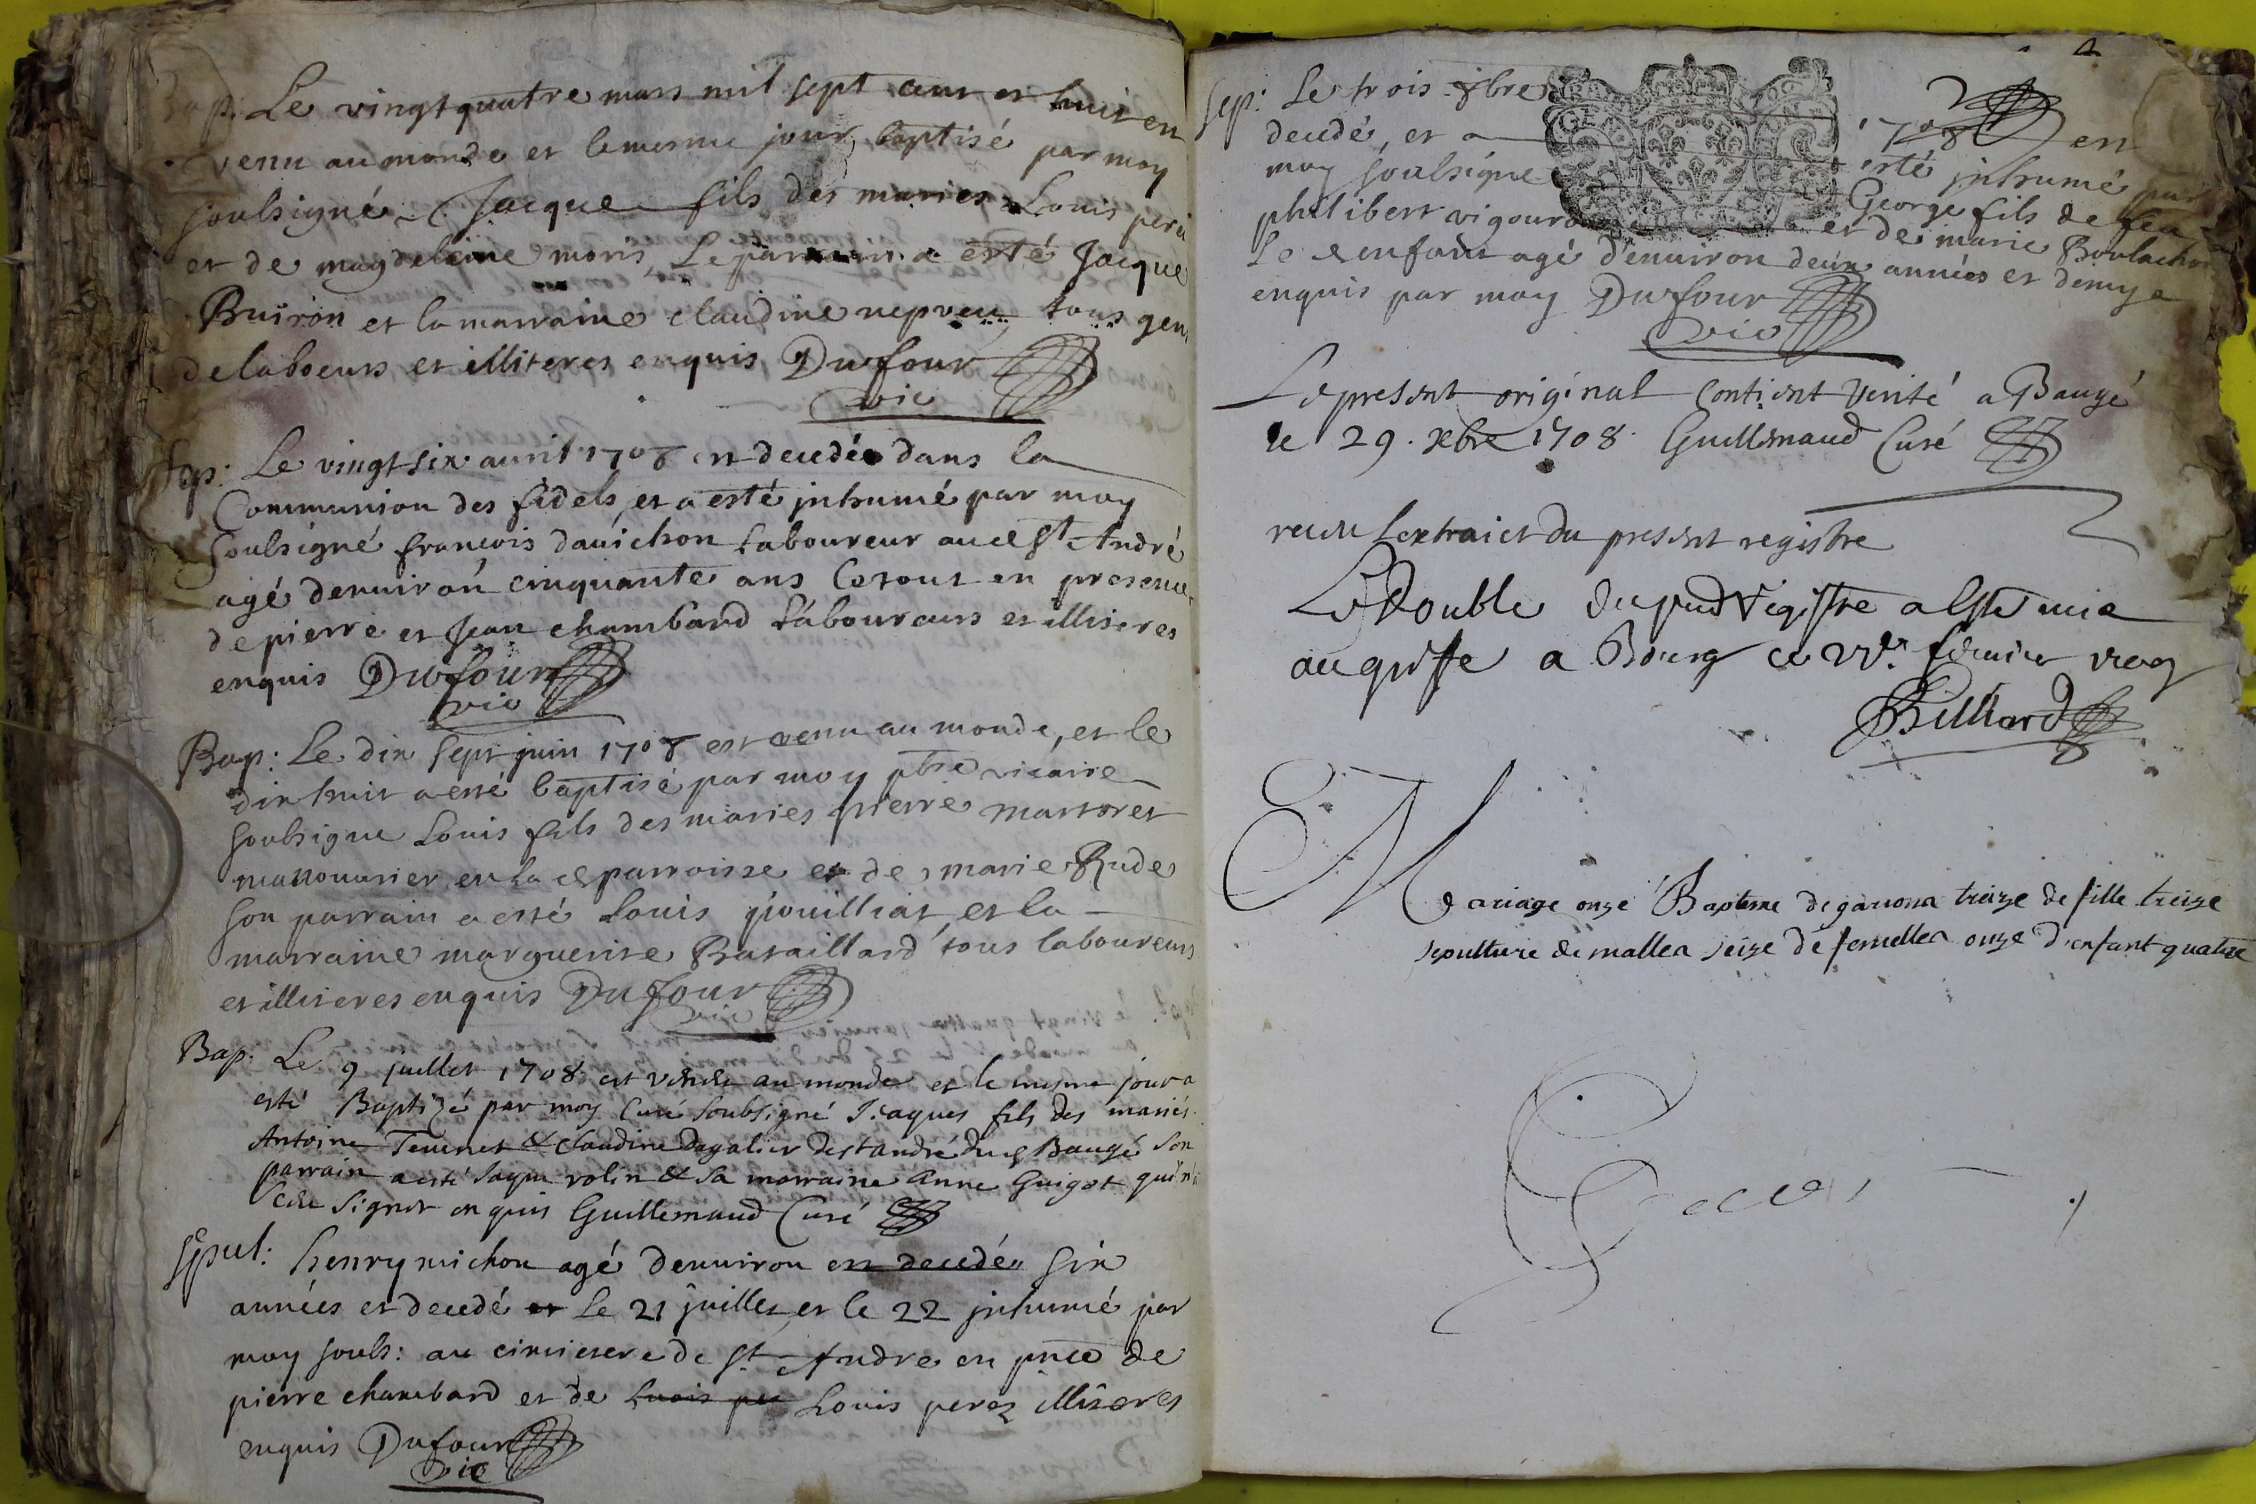 Bap: Le vingt quatre mars mil sept cent et huit est
venu au monde et le mesme jour baptisé par moy
soubsigné Jacque fils des maries Louis pere
et de magdeleine moris, Le parrain a esté Jacque
Buiron et la marraine claudine nepveu tous gens
de laboeurs et illiteres enquis Dufour
vic
Sep: Le vingt six auril 1708 est decedée dans la
Communion des fidels, et a esté inhumé par moy
soubsigné francois dauichon laboureur aud St André
agé denuiron cinquante ans le tout en presence
de pierre et Jean chambard laboureurs et illiteres
enquis Dufour
vic
Bap: Le dix sept juin 1708 est venu au monde, et le
dix huit a esté baptisé par moy pbre vicaire
soubsigne Louis fils des maries pierre martoret
manouurier en lad parroisse et de marie Rude
son parrain a esté Louis piouilliat et la
marraine marguerite Bataillard tous laboureurs
et illiteres enquis Dufour
vic
Bap: Le 9 juillet 1708 est venu au monde et le mesme jour a
esté Baptizé par moy Curé soubsigné Jeaques fils des mariés
Antoine Teuenet & claudine dagalier de st andré Baugé son
parrain a esté Jaque rolin & sa marraine Anne Guigot qui n'
sceu signer enquis Guillemaud Curé
Sepul: henry michon agé denuiron est decedée six
années et decedé et le 21 juillet et le 22 inhumé par
moy soubs: au cimetere de St Andre en pnce de
pierre chambard et de Louis pe Louis perez illiteres
enquis Dufour
vic
4
Sep: Le trois 8bre 1708 est
decedé, et a esté inhumé par
moy soubsigne George fils de feu
philibert vigour et de marie Boulachon
Led enfant agé d'enuiron deux années et demye
enquis par moy Dufour
vic
Le present original contient verité a Baugé
le 29. xbre 1708. Guillemaud Curé
receu lextraict du present registre
Le double du pnt Registre a esté mis
au greffe a Bourg ce feurier
Billiard
Mariage onze Baptême de garçons treize de fille treize
sepulture de malles seize de femelles onze d'enfant quatre